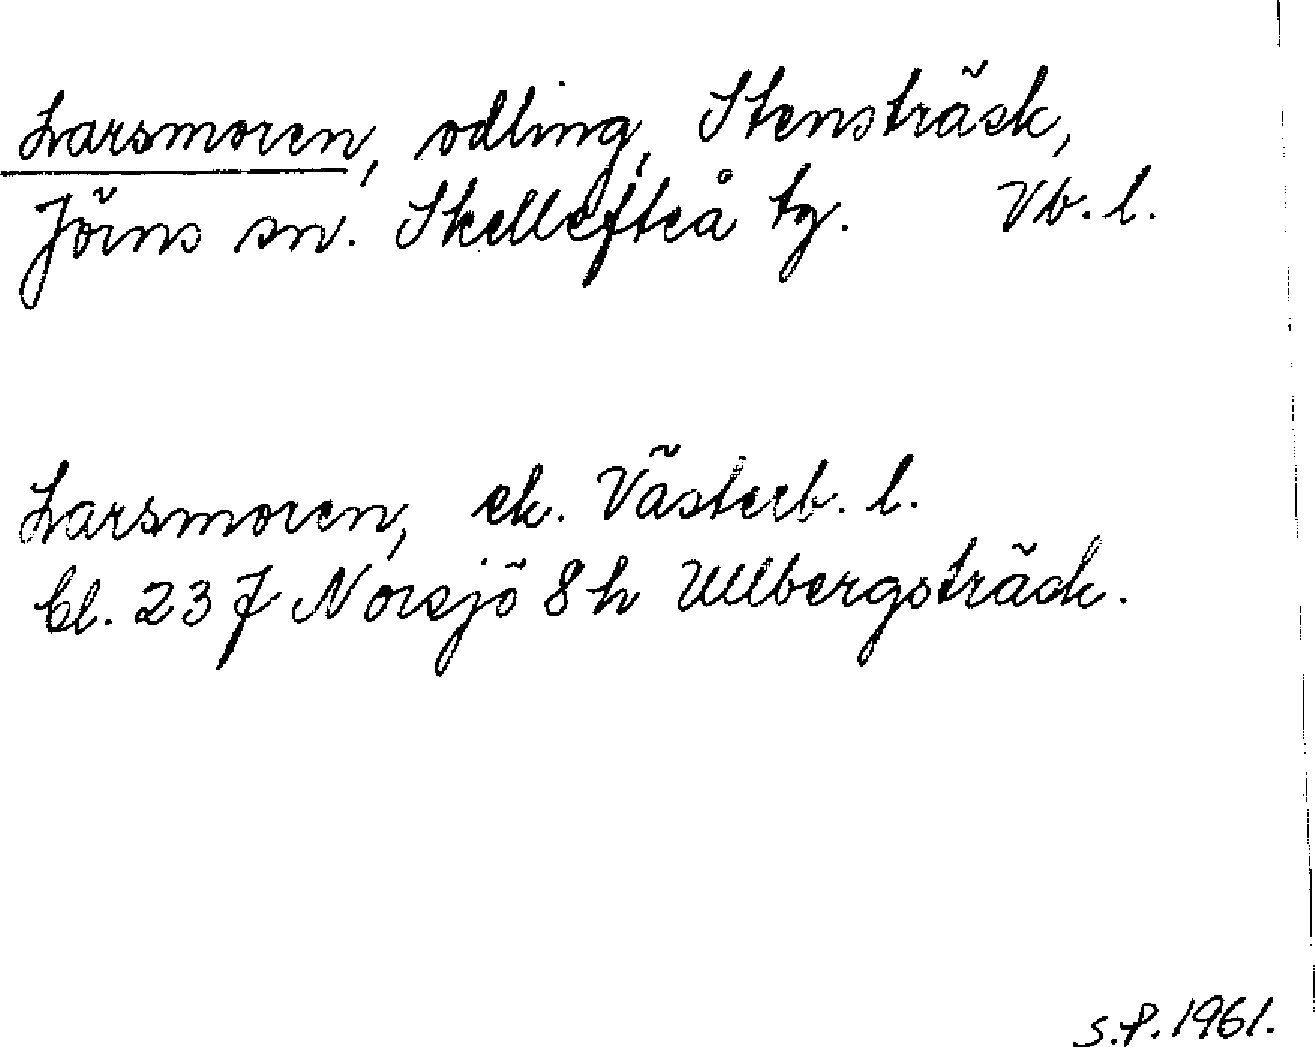 Larsmoren, odling, Stensträsk,
Jörns sn. Skellefteå tg. Vb. l.
Larsmoren, ek. Västerb. l.
bl. 23 J Norsjö 8 h Ullbergsträsk.
S.P. 1961.